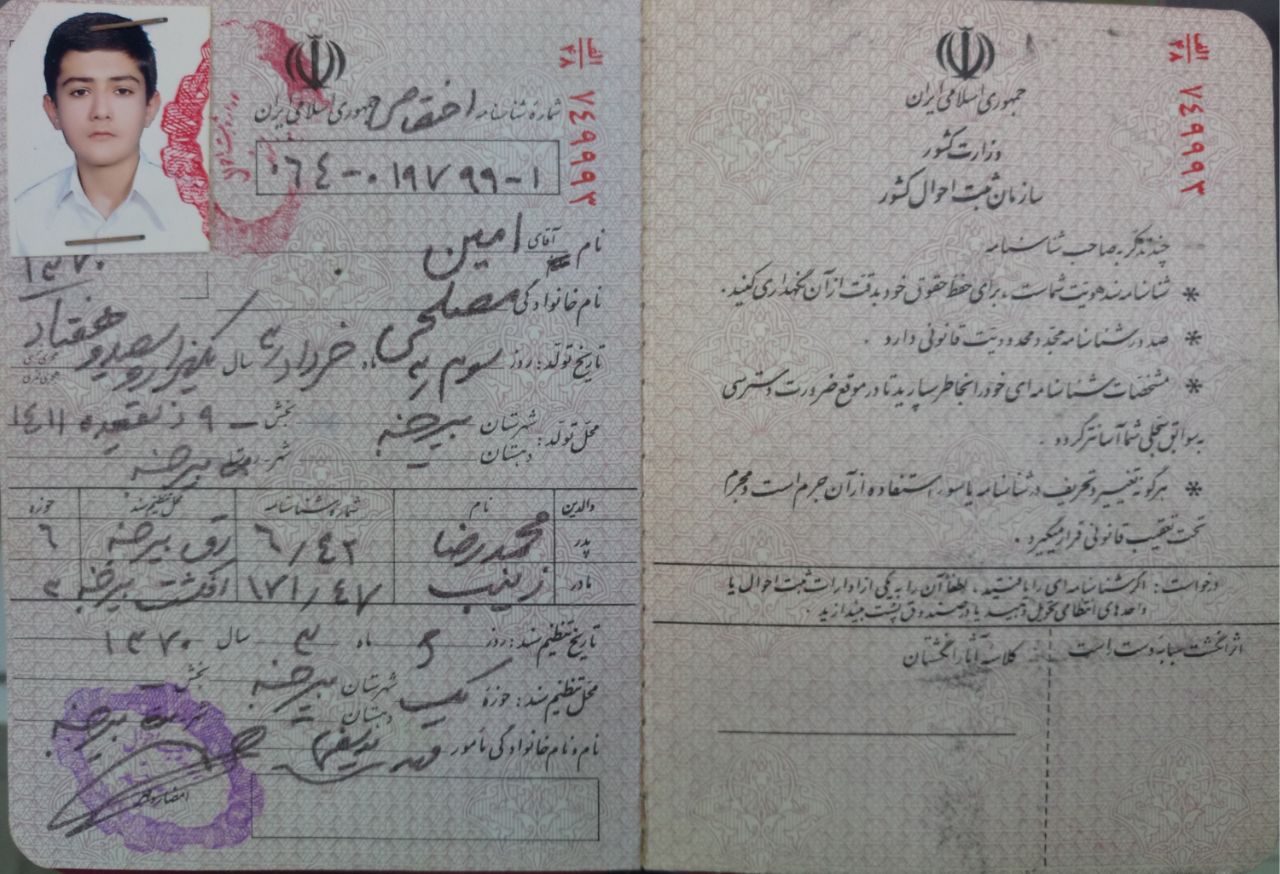 جمهوری اسلامی ایران
وزارت کشور
سازمان ثبت احوال کشور
چند تذکر به صاحب شناسنامه
* شناسنامه سند هویت شماست، برای حفظ حقوق خود بدقت از آن نگهداری کنید.
* صدور شناسنامه مجدد محدودیت قانونی دارد.
* مشخصات شناسنامه ای خود را بخاطر بسپارید تا در موقع ضرورت دسترسی
به سوابق سجلی شما آسانتر گردد.
* هرگونه تغییر و تحریف در شناسنامه یا سوء استفاده از آن جرم است و مجرم
تحت تعقیب قانونی قرار میگیرد.
درخواست: اگر شناسنامه ای را یافتید، لطفاً آن را به یکی از ادارات ثبت احوال یا
واحدهای انتظامی تحویل دهید یا در صندوق پست بیندازید.
اثر انگشت سبابه دست راست
کلاسه آثار انگشتان
الف
۴۸
۷٤۹۹۹۳
الف
۴۸
۷٤۹۹۹۳
جمهوری اسلامی ایران
شماره شناسنامه اختصاصی
۰٦٤-۰۱۹۷۹۹-۱
نام آقای امین
۱۳۷۰
نام خانوادگی مصلحی
تاریخ تولد: روز سوم ماه خرداد سال یکهزار و سیصد و هفتاد
محل تولد: شهرستان بیرجند بخش - ۹ ذیقعده ۱٤۱۱
دهستان شهر بیرجند
والدین نام شماره شناسنامه محل تنظیم سند حوزه
پدر محمدرضا ٦/۴۲ رق بیرجند ٦
مادر زینب ۱۷۱/٤۷ بیرجند ۳
تاریخ تنظیم سند: روز ۵ ماه ۳ سال ۱۳۷۰
محل تنظیم سند: حوزه یک شهرستان بیرجند بخش -
دهستان بیرجند
نام و نام خانوادگی مأمور
امضاء و مهر